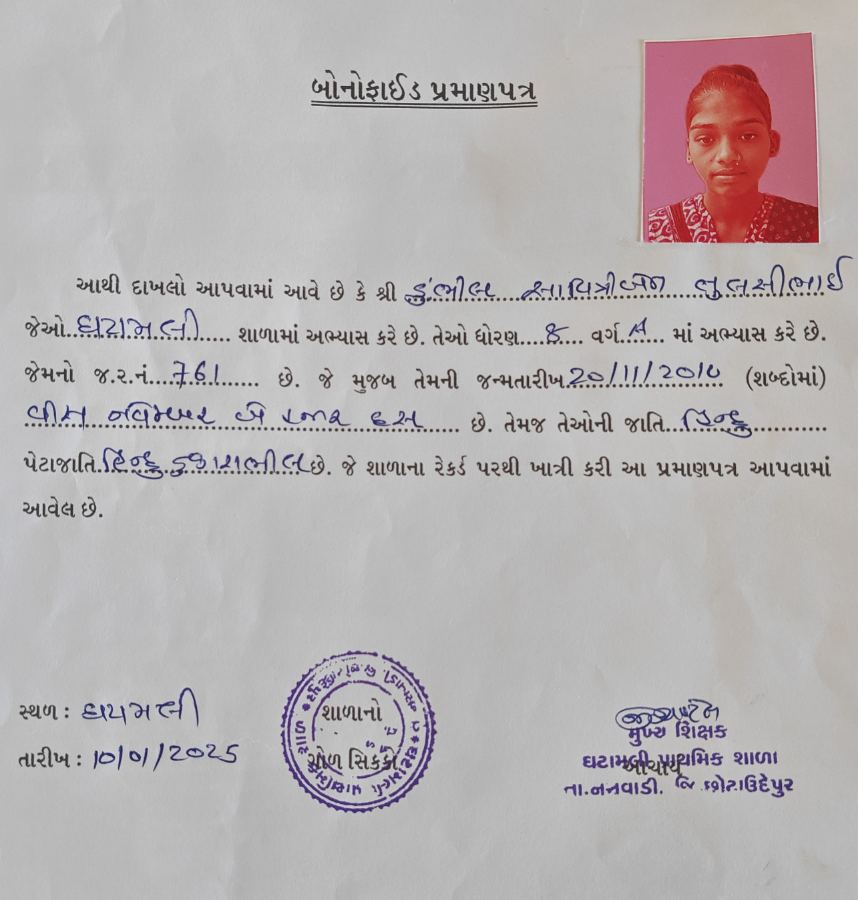 બોનોફાઈડ પ્રમાણપત્ર
આથી દાખલો આપવામાં આવે છે કે શ્રી ડુંભીલ સાવિત્રીબેન તુલસીભાઈ
જેઓ ઘટામલી શાળામાં અભ્યાસ કરે છે. તેઓ ધોરણ ૮ વર્ગ A માં અભ્યાસ કરે છે.
જેમનો જ.ર.નં. 761 છે. જે મુજબ તેમની જન્મતારીખ 20/11/2010 (શબ્દોમાં)
વીસ નવેમ્બર બે હજાર દસ છે. તેમજ તેઓની જાતિ હિન્દુ
પેટાજાતિ હિન્દુ છે. જે શાળાના રેકર્ડ પરથી ખાત્રી કરી આ પ્રમાણપત્ર આપવામાં
આવેલ છે.
સ્થળ : ઘટામલી
તારીખ : 10/01/2025
શાળાનો
ગોળ સિક્કો
મુખ્ય શિક્ષક
આચાર્ય
ઘટામલી પ્રાથમિક શાળા
તા.નસવાડી. જિ.છોટાઉદેપુર